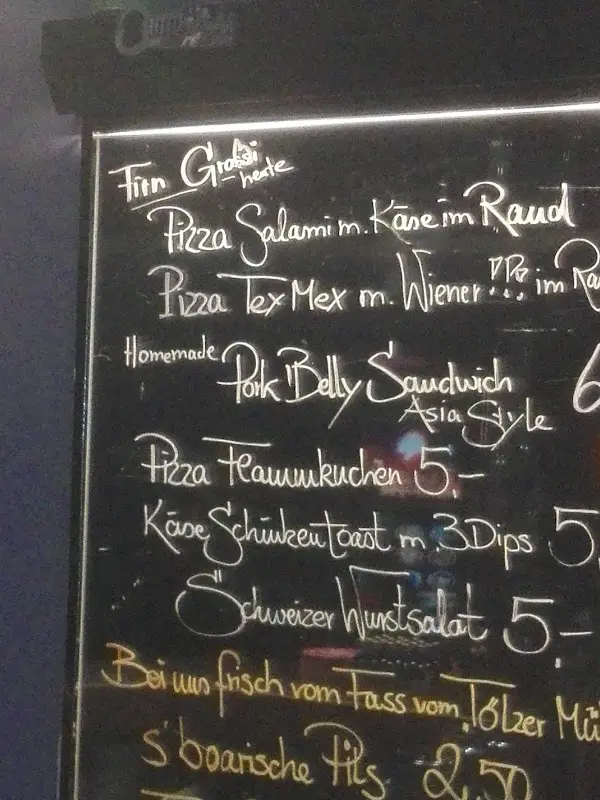 Firn Grassi
heute
Pizza Salami m. Käse im Rand
Pizza Tex Mex m. Wiener !!! im Ra
Homemade Pork Belly Sandwich 6
Asia Style
Pizza Flammkuchen 5,-
Käse Schinken toast m. 3 Dips 5,
Schweizer Wurstsalat 5,-
Bei uns frisch vom Fass vom Tölzer Mü
s'boarische Pils 2,50